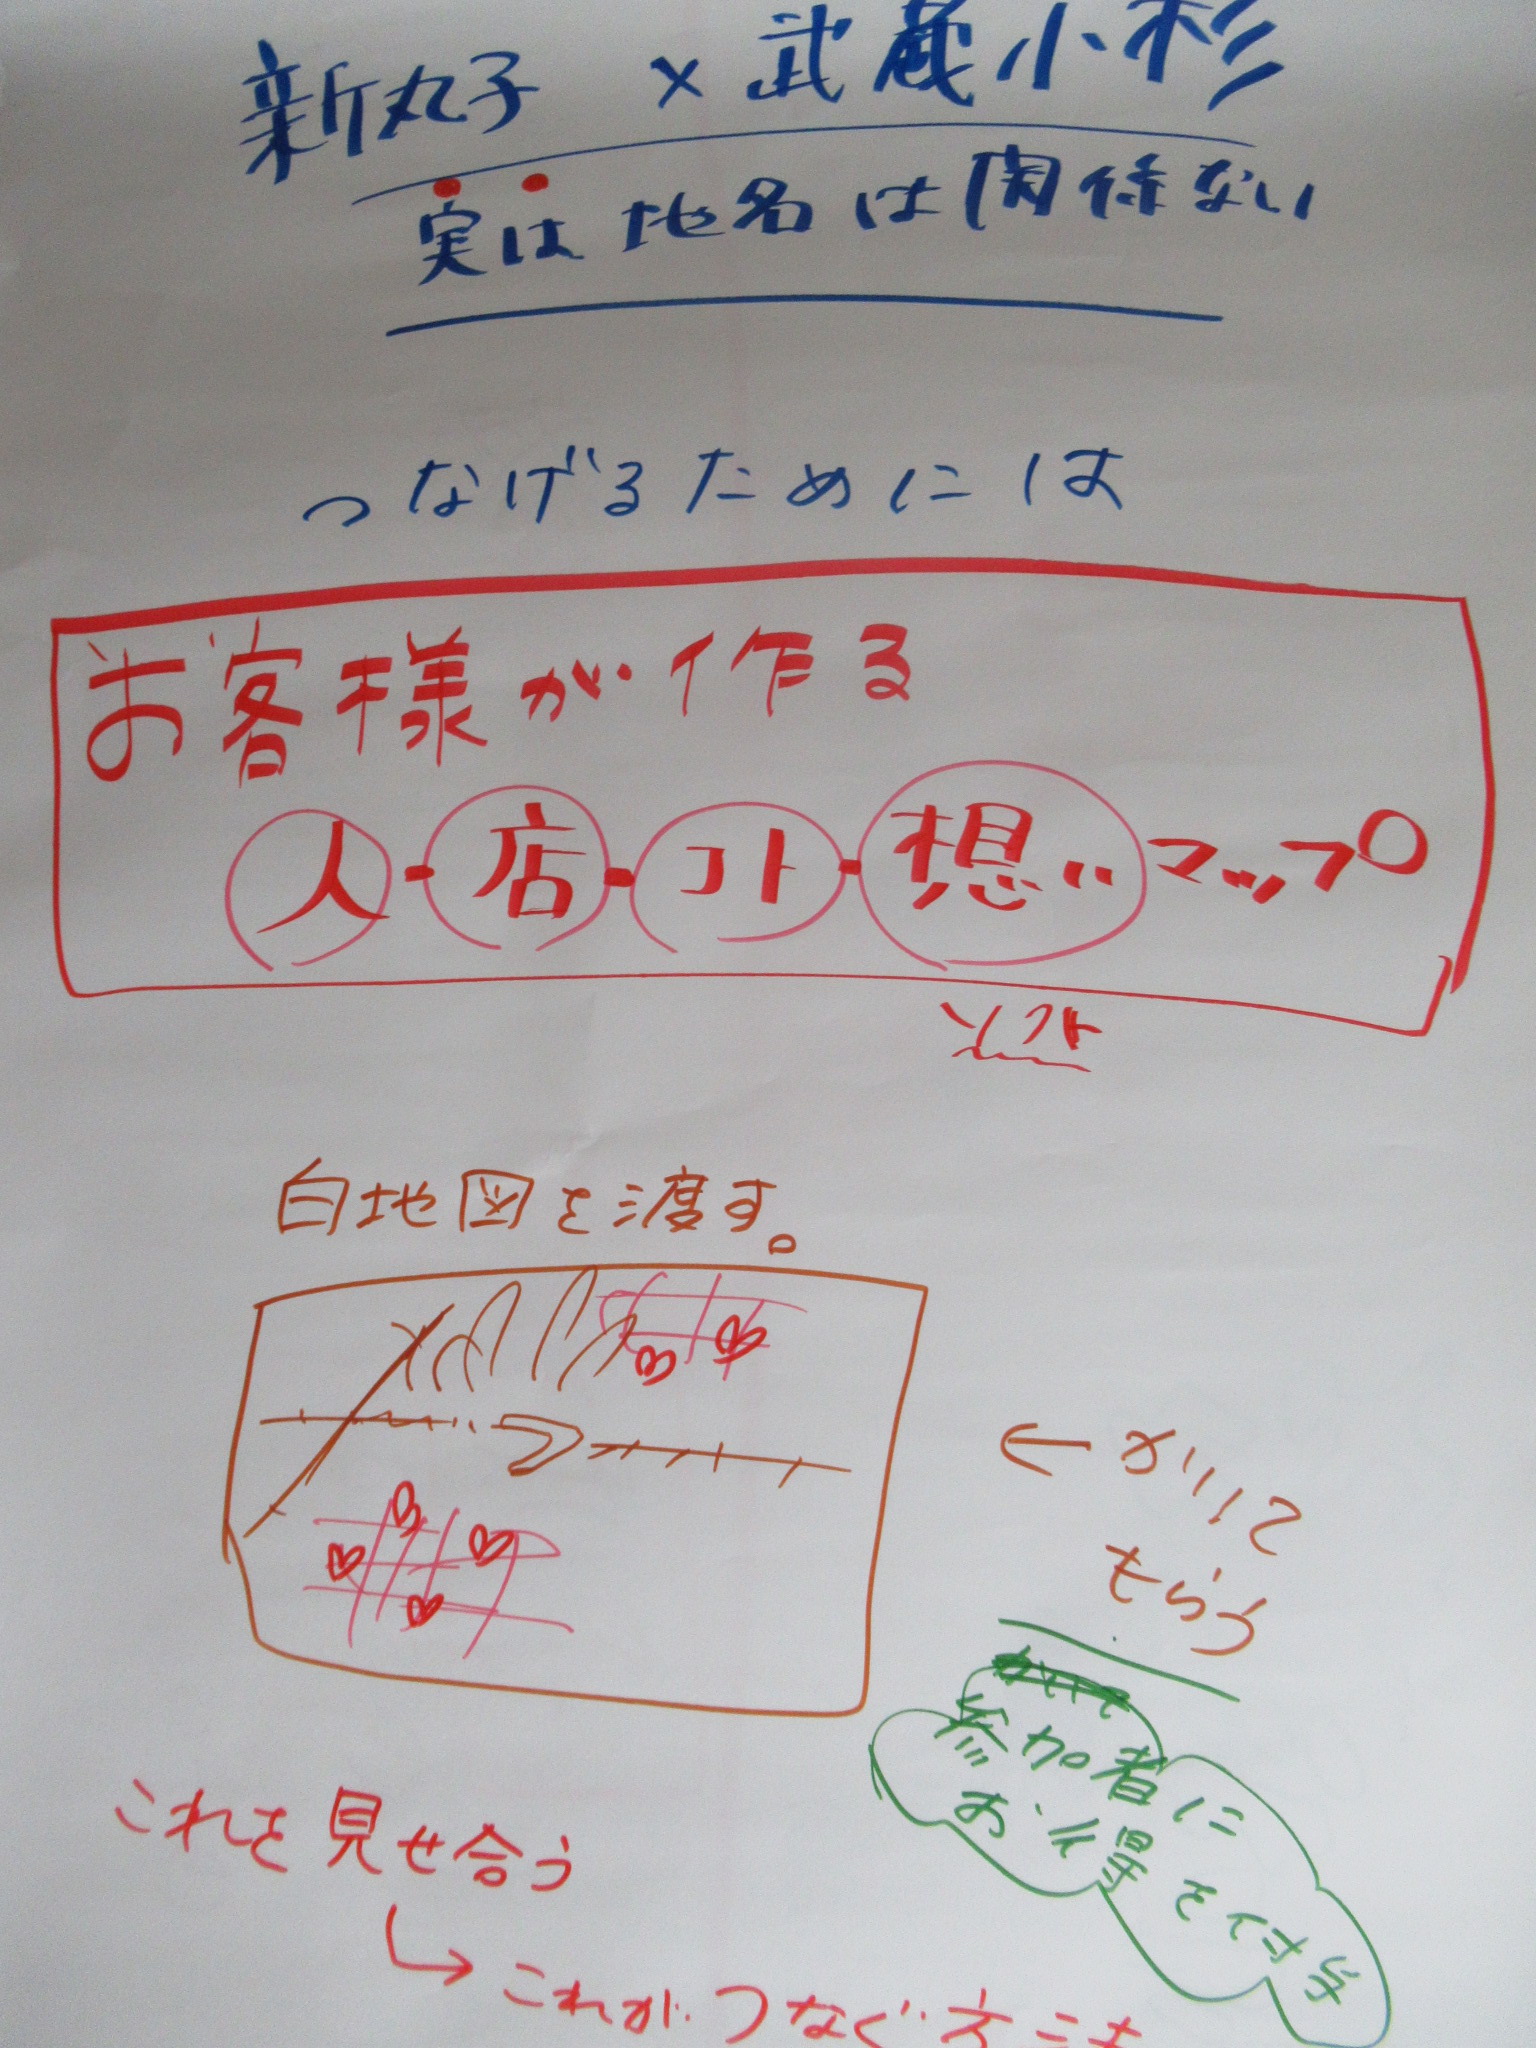 新丸子 × 武蔵小杉
実は地名は関係ない
つなげるためには
お客様が作る
人・店・コト・想いマップ
ソフト
白地図を渡す。
← かいて
もらう
参加者に
お得を付与
これを見せ合う
→ これがつなぐ方法